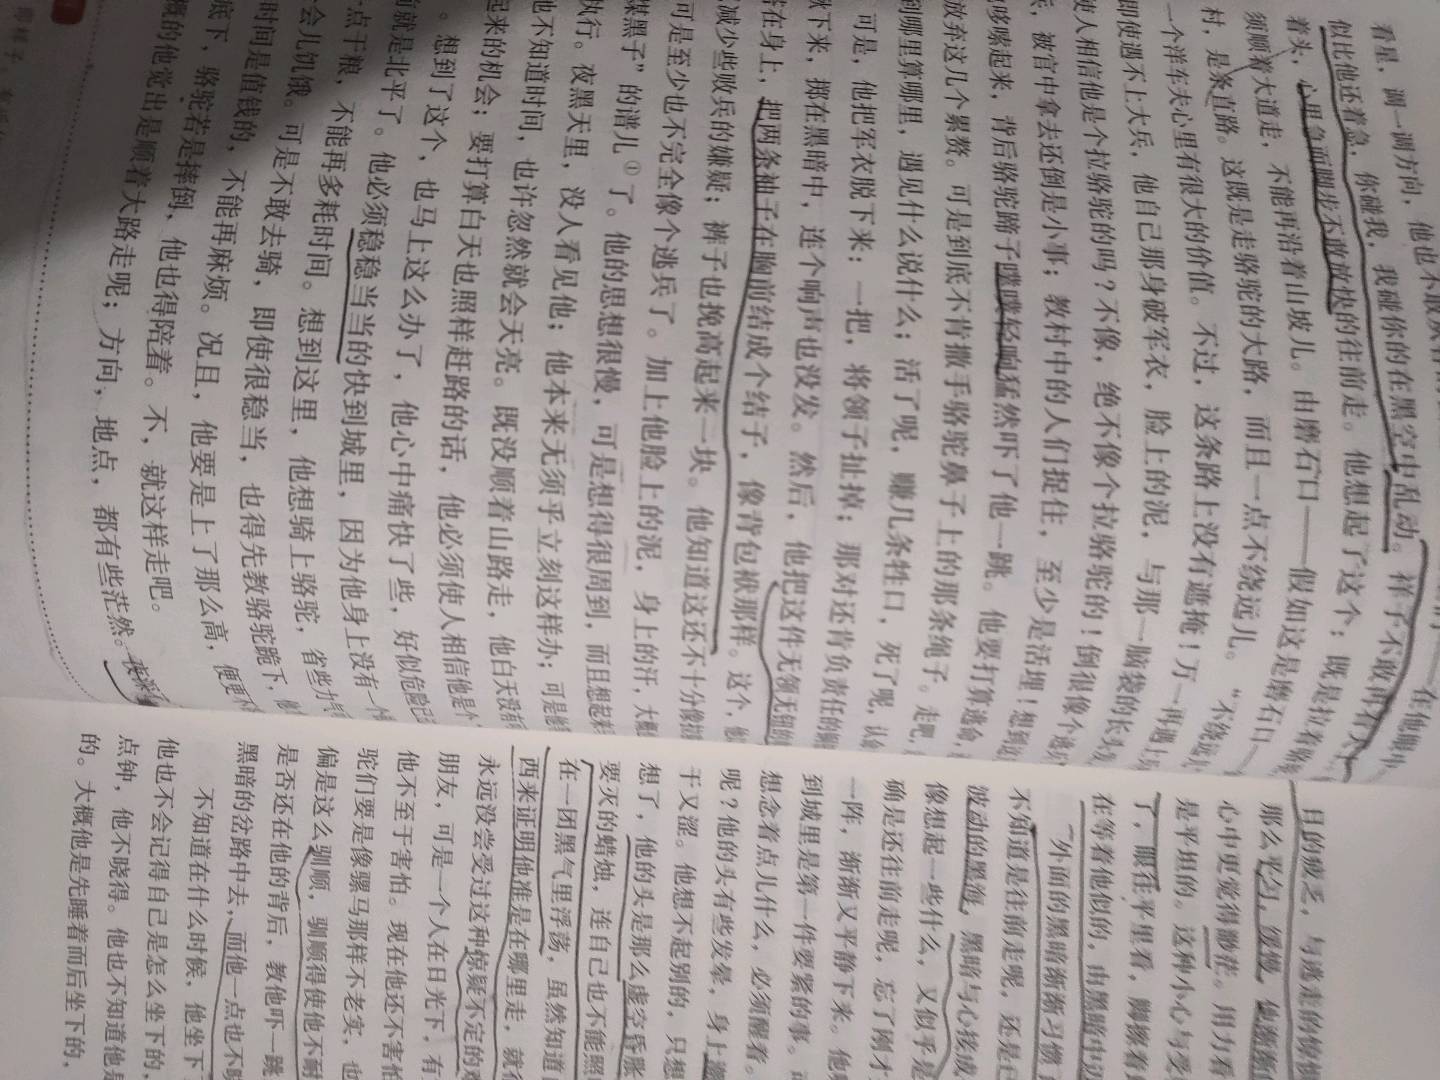 看星，调一调方向，他也不敢
似比他还着急，你碰我，我碰你的在黑空中乱动。祥子不敢再看
着头，心里急而脚步不敢放快的往前走。他想起了这个：既是拉着骆
须顺着大道走，不能再沿着山坡儿。由磨石口——假如这是磨石口——
村，是条直路。这既是走骆驼的大路，而且一点不绕远儿。“不绕远
一个洋车夫心里有很大的价值。不过，这条路上没有遮掩！万一再遇上
即使遇不上大兵，他自己那身破军衣，脸上的泥，与那一脑袋的长头发
使人相信他是个拉骆驼的吗？不像，绝不像个拉骆驼的！倒很像个逃
兵，被官中拿去还倒是小事；教村中的人们捉住，至少是活埋！想到
哆嗦起来，背后骆驼蹄子噗噗轻响猛然吓了他一跳。他要打算逃命，
放弃这几个累赘。可是到底不肯撒手骆驼鼻子上的那条绳子。走吧，
到哪里算哪里，遇见什么说什么；活了呢，赚几条牲口，死了呢，认
可是，他把军衣脱下来：一把，将领子扯掉；那对还肯负责任的
下来，掷在黑暗中，连个响声也没发。然后，他把这件无领无钮的
在身上，把两条袖子在胸前结成个结子，像背包袱那样。这个，他
减少些败兵的嫌疑；裤子也挽高起来一块。他知道这还不十分像拉
可是至少也不完全像个逃兵了。加上他脸上的泥，身上的汗，大概
煤黑子”的谱儿①了。他的思想很慢，可是想得很周到，而且想起来
执行。夜黑天里，没人看见他；他本来无须乎立刻这样办；可是
他不知道时间，也许忽然就会天亮。既没顺着山路走，他白天没有
起来的机会；要打算白天也照样赶路的话，他必须使人相信他是个
。想到了这个，也马上这么办了，他心中痛快了些，好似危险已
前就是北平了。他必须稳稳当当的快到城里，因为他身上没有一个
点干粮，不能再多耗时间。想到这里，他想骑上骆驼，省些力
会儿饥饿。可是不敢去骑，即使很稳当，也得先教骆驼跪下，他
时间是值钱的，不能再麻烦。况且，他要是上了那么高，便更不
底下，骆驼若是摔倒，他也得陪着。不，就这样走吧。
概的他觉出是顺着大路走呢；方向，地点，都有些茫然。
目的疲乏，与逃走的惊惧
那么平匀，缓慢，他渐渐
心中更觉得渺茫。用力看
是平坦的。这种小心与受
了，眼往平里看，脚擦着
在等着他似的，由黑暗中
外面的黑暗渐渐习惯了
不知道是往前走呢，还是
波动的黑海，黑暗与心接成
像想起一些什么，又似乎是
确是还往前走呢，忘了刚才
一阵，渐渐又平静下来。他
到城里是第一件要紧的事。
想念着点儿什么，必须醒着。
呢？他的头有些发晕，身上
干又涩。他想不起别的，只想
想了，他的头是那么虚空昏胀
要灭的蜡烛，连自己也不能照
在一团黑气里浮荡，虽然知道
西来证明他准是在哪里走，就
永远没尝受过这种惊疑不定的
朋友，可是一个人在日光下，有
他不至于害怕。现在他还不害怕
驼们要是像骡马那样不老实，也
偏是这么驯顺，驯顺得使他不耐
是否还在他的背后，教他吓一跳
黑暗的岔路中去，而他一点也不
不知道在什么时候，他坐下了
他也不会记得自己是怎么坐下的，
点钟，他不晓得。他也不知道他是
的。大概他是先睡着而后坐下的，